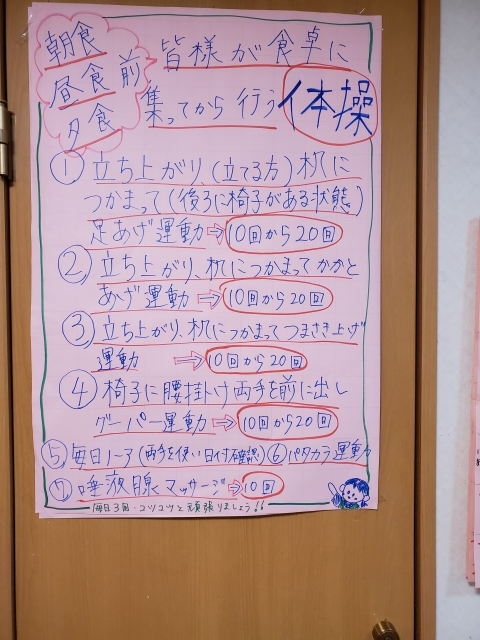 朝食
昼食 前
夕食
皆様が食卓に
集ってから行う体操
① 立ち上がり、(立てる方)机に
つかまって(後ろに椅子がある状態)
足あげ運動⇨10回から20回
② 立ち上がり、机につかまってかかと
あげ運動⇨10回から20回
③ 立ち上がり、机につかまってつまさき上げ
運動⇨10回から20回
④ 椅子に腰掛け両手を前に出し
グーパー運動⇨10回から20回
⑤ 毎日ノーア(両手を使い日付確認) ⑥ パタカラ運動
⑦ 唾液腺マッサージ⇨10回
毎日3回・コツコツと頑張りましょう!!